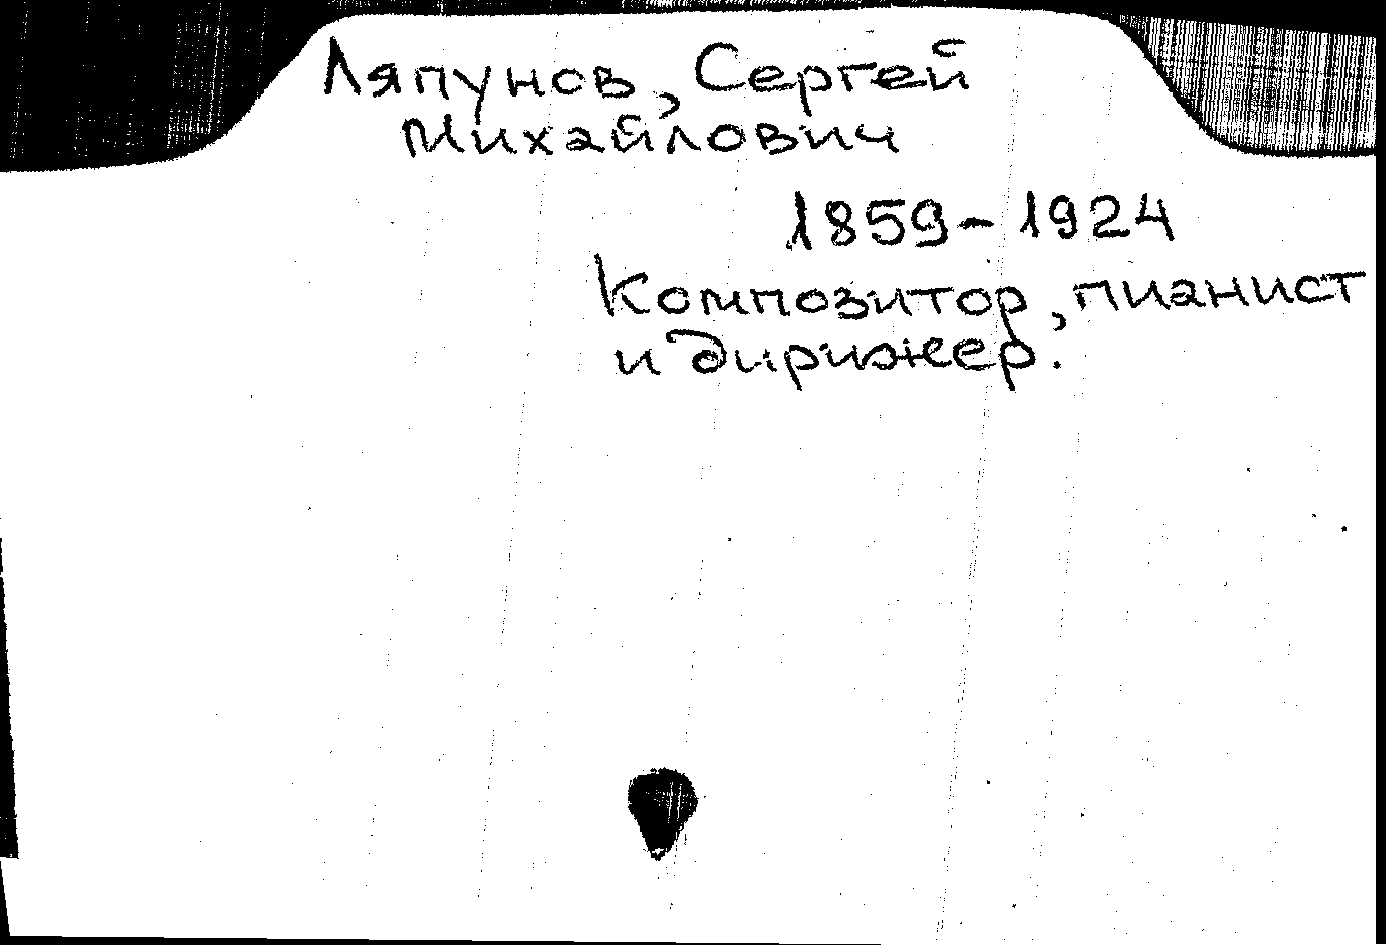 Ляпунов, Сергей
Михайлович
1859-1924
Композитор, пианист
и дирижер.